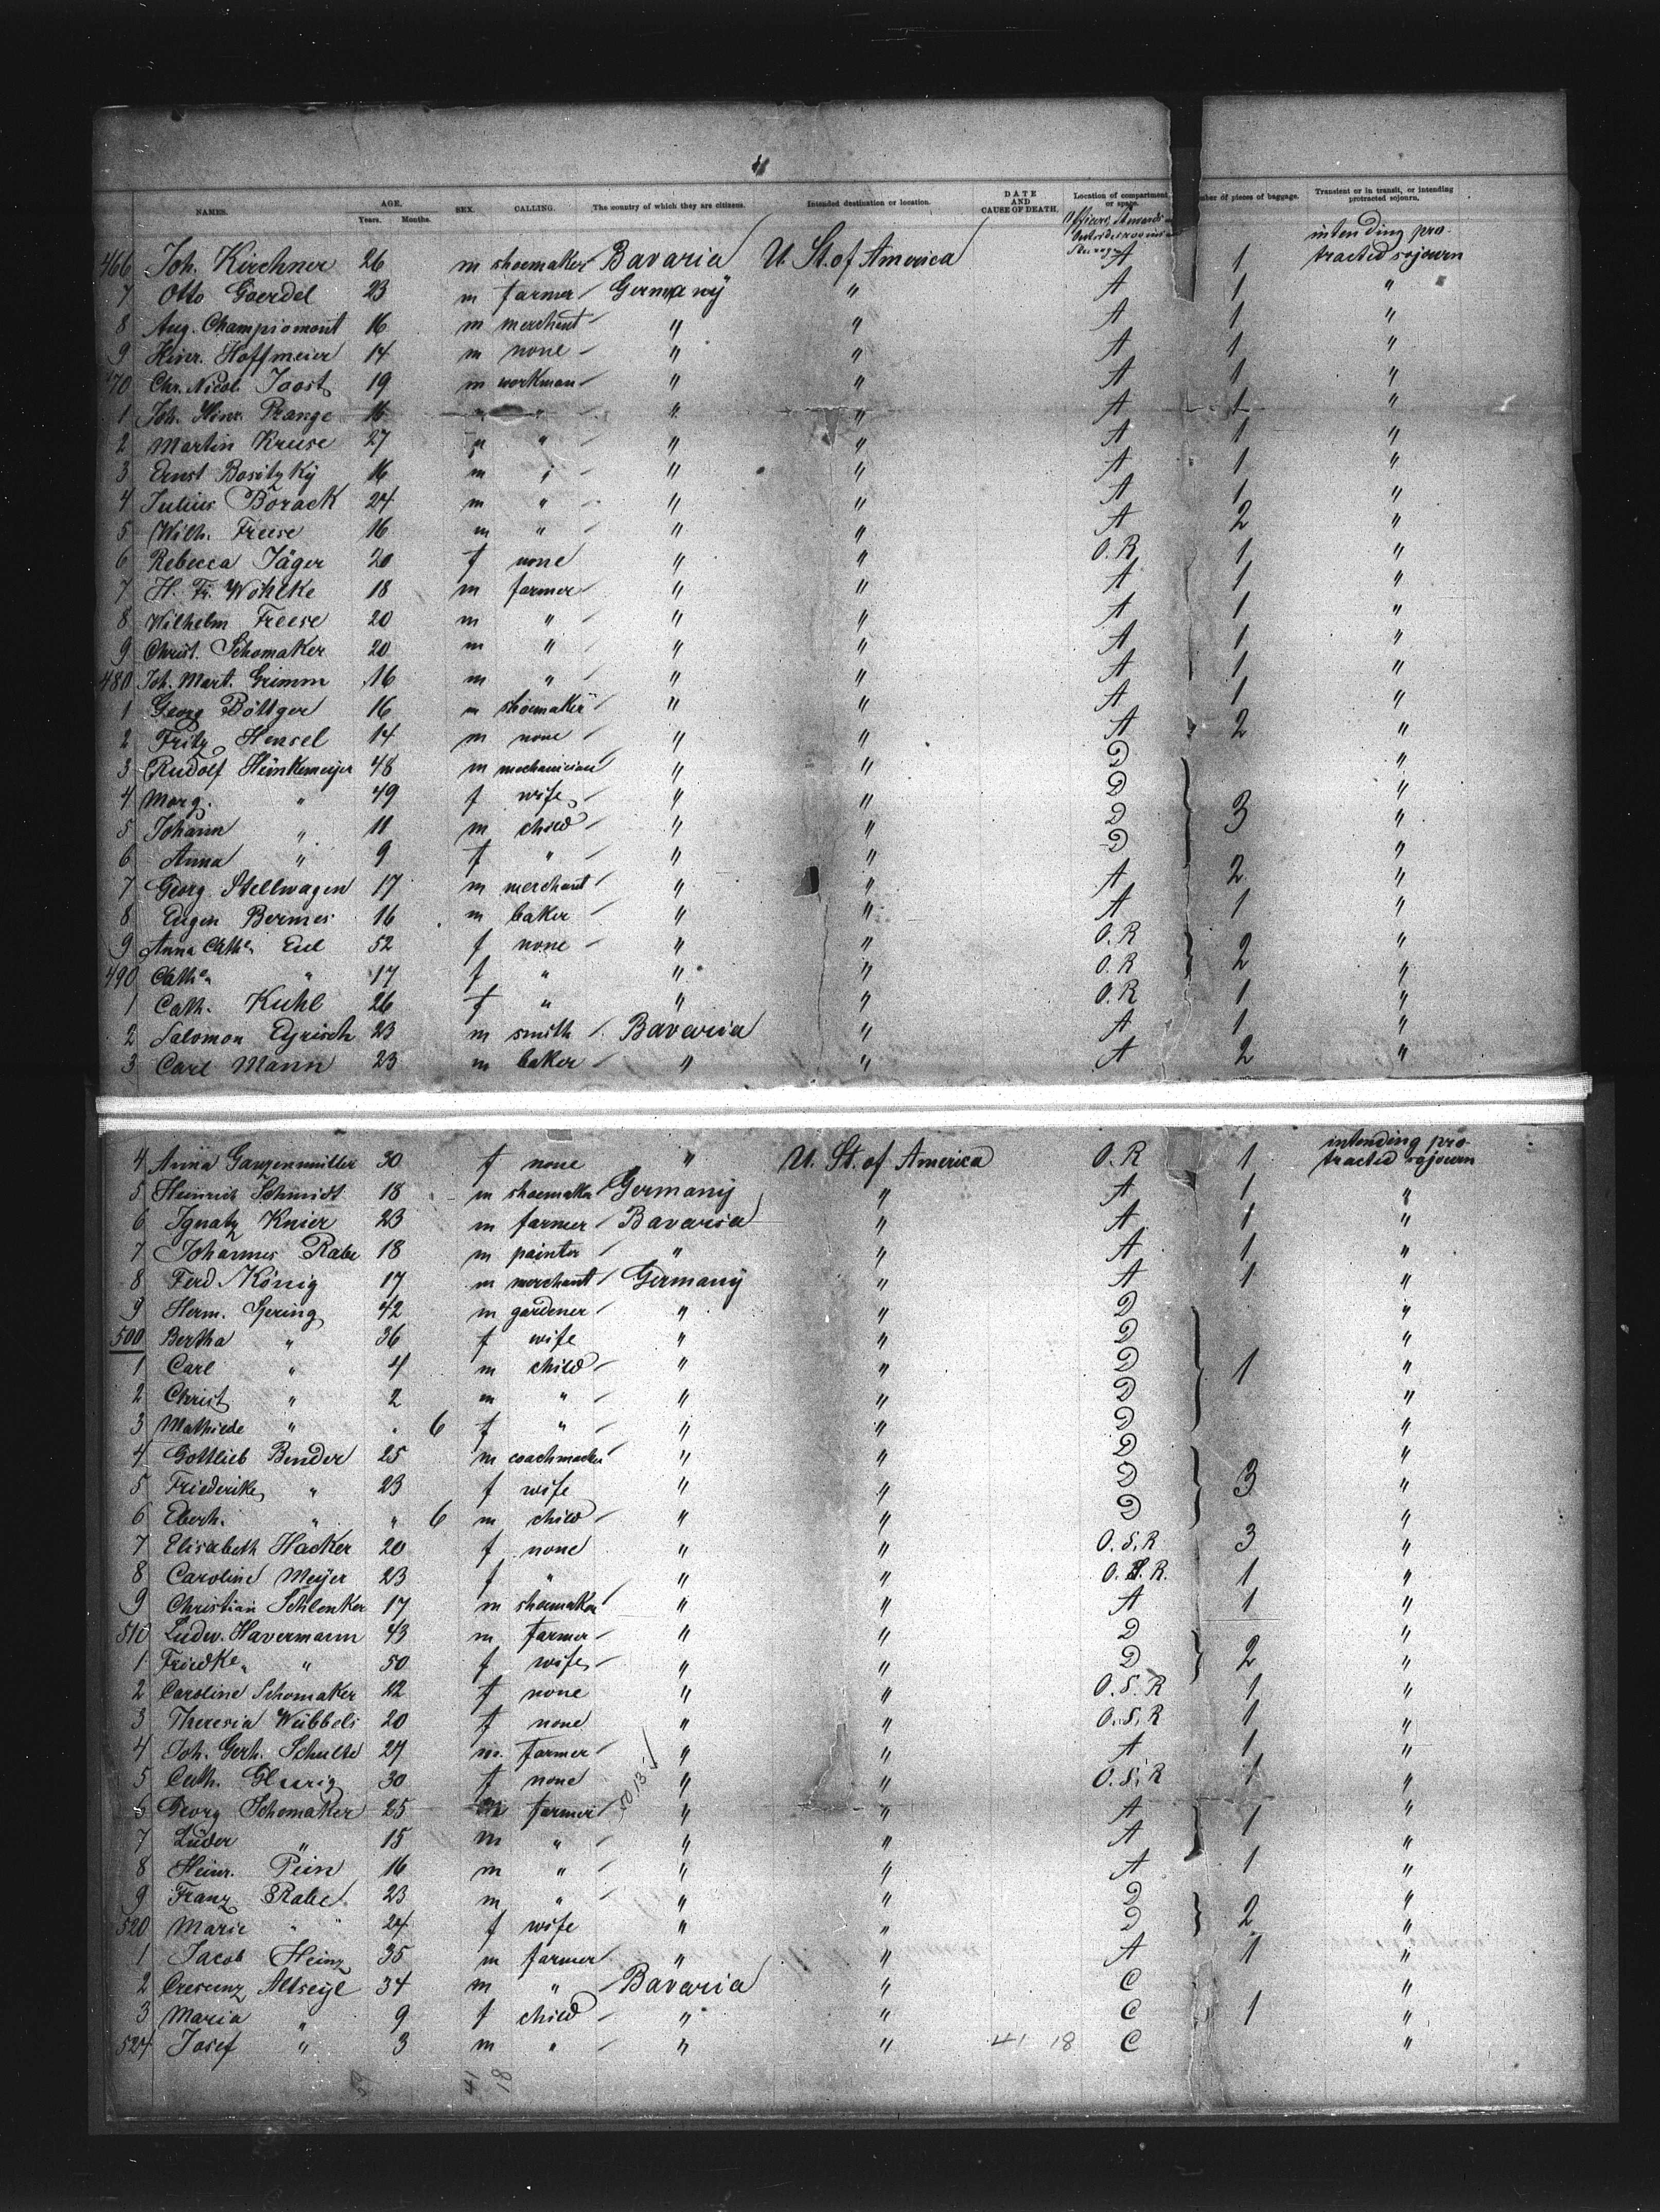 4
NAMES. AGE. Years. Months. SEX. CALLING. The country of which they are citizens. Intended destination or location. DATE AND CAUSE OF DEATH. Location of compartment or space. ber of pieces of baggage. Transient or in transit, or intending protracted sojourn.
466 Joh. Kirchner 26 m shoemaker Bavaria U. St. of America A 1 intending protracted sojourn
7 Otto Goerdel 23 m farmer Germany " A 1 "
8 Aug. Championont 16 m merchant " " A 1 "
9 Hinr. Hoffmeier 14 m none " " A 1 "
470 Chr. Nicol. Joost 19 m workman " " A 1 "
1 Joh. Hinr. Prange 16 " " " " A 1 "
2 Martin Kruse 27 " " " " A 1 "
3 Ernst Bositzky 16 m " " " A 1 "
4 Julius Borack 24 m " " " A 1 "
5 Wilh. Freese 16 m " " " A 2 "
6 Rebecca Jäger 20 f none " " O.R 1 "
7 H. Fr. Wohlke 18 m farmer " " A 1 "
8 Wilhelm Freese 20 m " " " A 1 "
9 Christ. Schomaker 20 m " " " A 1 "
480 Joh. Mart. Grimm 16 m " " " A 1 "
1 Georg Böttger 16 m shoemaker " " A 1 "
2 Fritz Hensel 14 m none " " A 2 "
3 Rudolf Heinkemeyer 48 m mechanician " " D "
4 Marg. " 49 f wife " " D "
5 Johann " 11 m child " " D 3 "
6 Anna " 9 f " " " D "
7 Georg Stellwagen 17 m merchant " " A 2 "
8 Eugen Bermes 16 m baker " " A 1 "
9 Anna Cath. Eul 52 f none " " O.R "
490 Cath. " 17 f " " " O.R 2 "
1 Cath. Kuhl 26 f " " " O.R 1 "
2 Salomon Eyrisch 23 m smith Bavaria " A 1 "
3 Carl Mann 23 m baker " " A 2 "
4 Anna Ganzenmüller 30 f none " U. St. of America O.R 1 intending protracted sojourn
5 Heinrich Schmidt 18 m shoemaker Germany " A 1 "
6 Ignatz Knier 23 m farmer Bavaria " A 1 "
7 Johannes Rabe 18 m painter " " A 1 "
8 Ferd König 17 m merchant Germany " A 1 "
9 Herm. Spering 42 m gardener " " D "
500 Bertha " 36 f wife " " D "
1 Carl " 4 m child " " D 1 "
2 Christ " 2 m " " " D "
3 Mathilde " . 6 f " " " D "
4 Gottlieb Bender 25 m coachmaker " " D "
5 Friederike " 23 f wife " " D 3 "
6 Eberh. " " 6 m child " " D "
7 Elisabeth Hacker 20 f none " " O.S.R 3 "
8 Caroline Meyer 23 f " " " O.S.R. 1 "
9 Christian Schlenker 17 m shoemaker " " A 1 "
510 Ludw. Havermann 43 m farmer " " D "
1 Friedke. " 50 f wife " " D 2 "
2 Caroline Schomaker 22 f none " O.S.R 1 "
3 Theresia Wübbels 20 f none " " O.S.R 1 "
4 Joh. Gerh. Schulte 27 m. farmer " " A 1 "
5 Cath. 30 f none " " O.S.R 1 "
6 Georg Schomaker 25 m farmer " " A "
7 Lüder " 15 m " " " A 1 "
8 Heinr. Pein 16 m " " " A 1 "
9 Franz Rabe 23 m " " " D "
520 Marie " 24 f wife " " D 2 "
1 Jacob Heinz 35 m farmer " " A 1 "
2 Crescenz Altseyl 34 m " Bavaria " C "
3 Maria " 9 f child " " C 1 "
524 Josef " 3 m " " " 41 18 C "
41 18